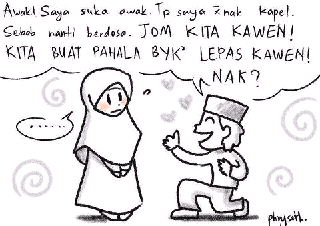 Awak! Saya suka awak. Tp saya xnak kapel.
Sebab nanti berdosa. JOM KITA KAWEN!
KITA BUAT PAHALA BYK² LEPAS KAWEN!
NAK?
......
?